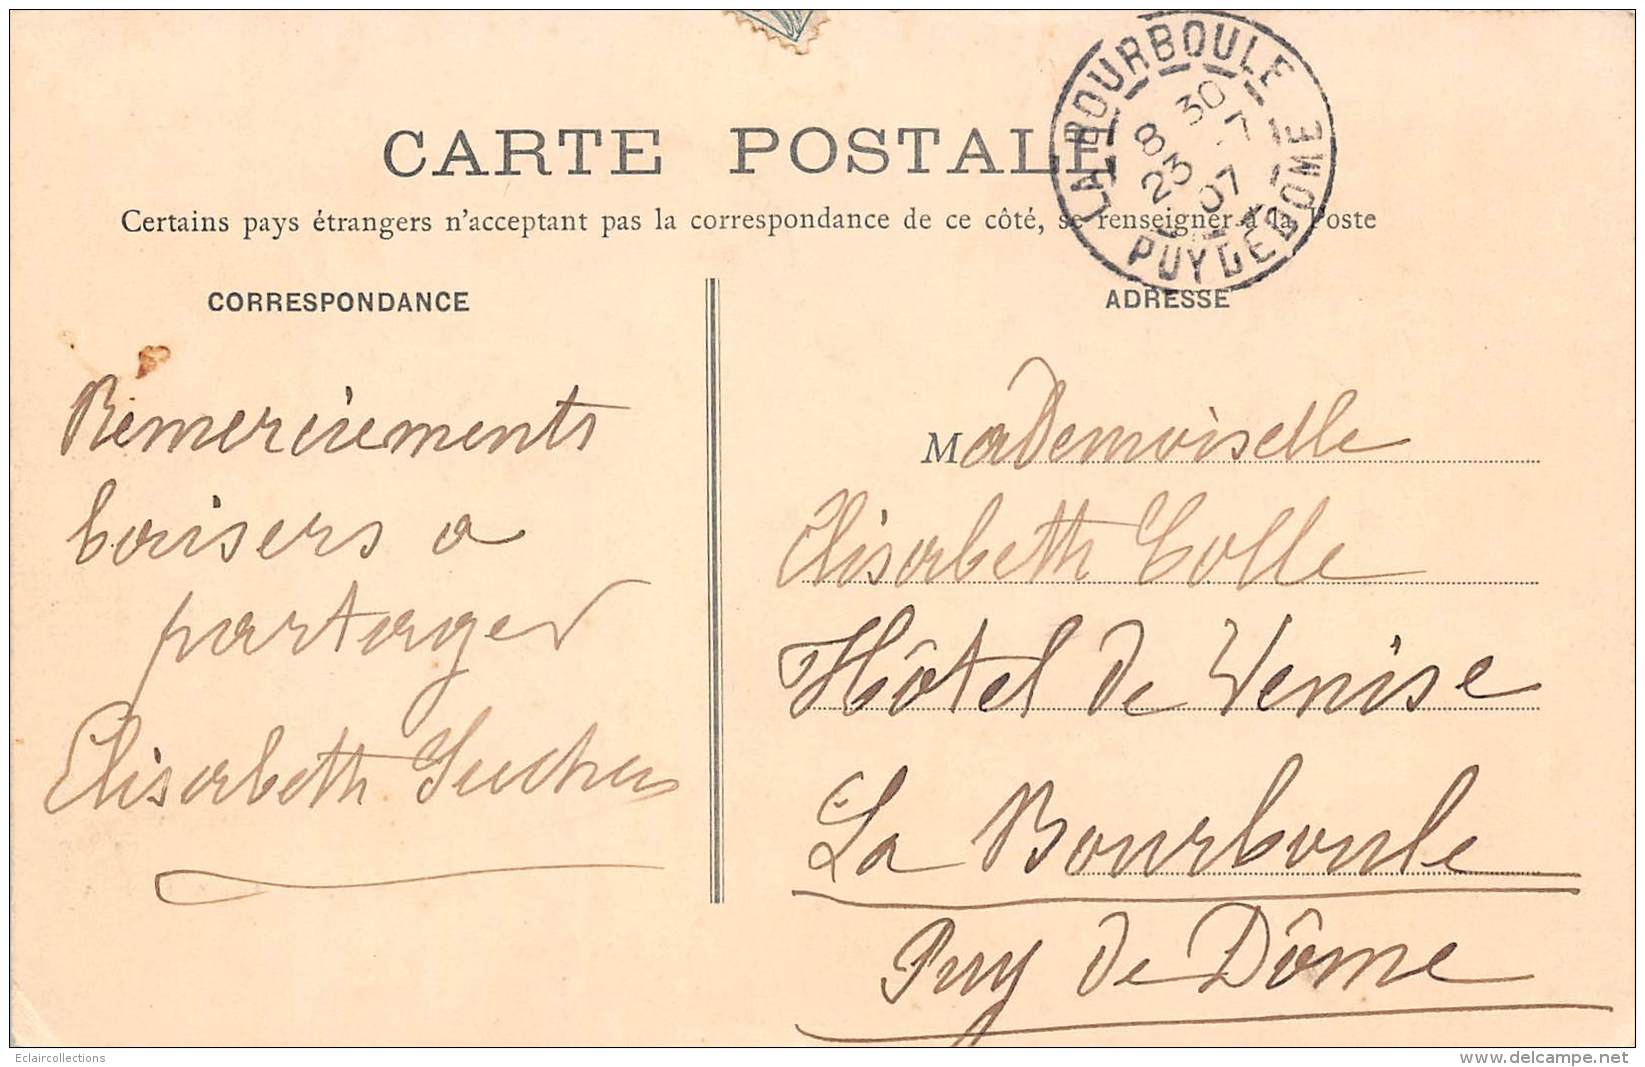 CARTE POSTALE
Certains pays étrangers n'acceptent pas la correspondance de ce côté, se renseigner à la Poste
LA BOURBOULE
8 30
23 -7
07
PUY DE DOME
CORRESPONDANCE
Remerciements
baisers a
partager
Elisabeth
ADRESSE
Mademoiselle
Elisabeth Colle
Hôtel de Venise
La Bourboule
Puy de Dôme
Eclaircollections
delcampe.net